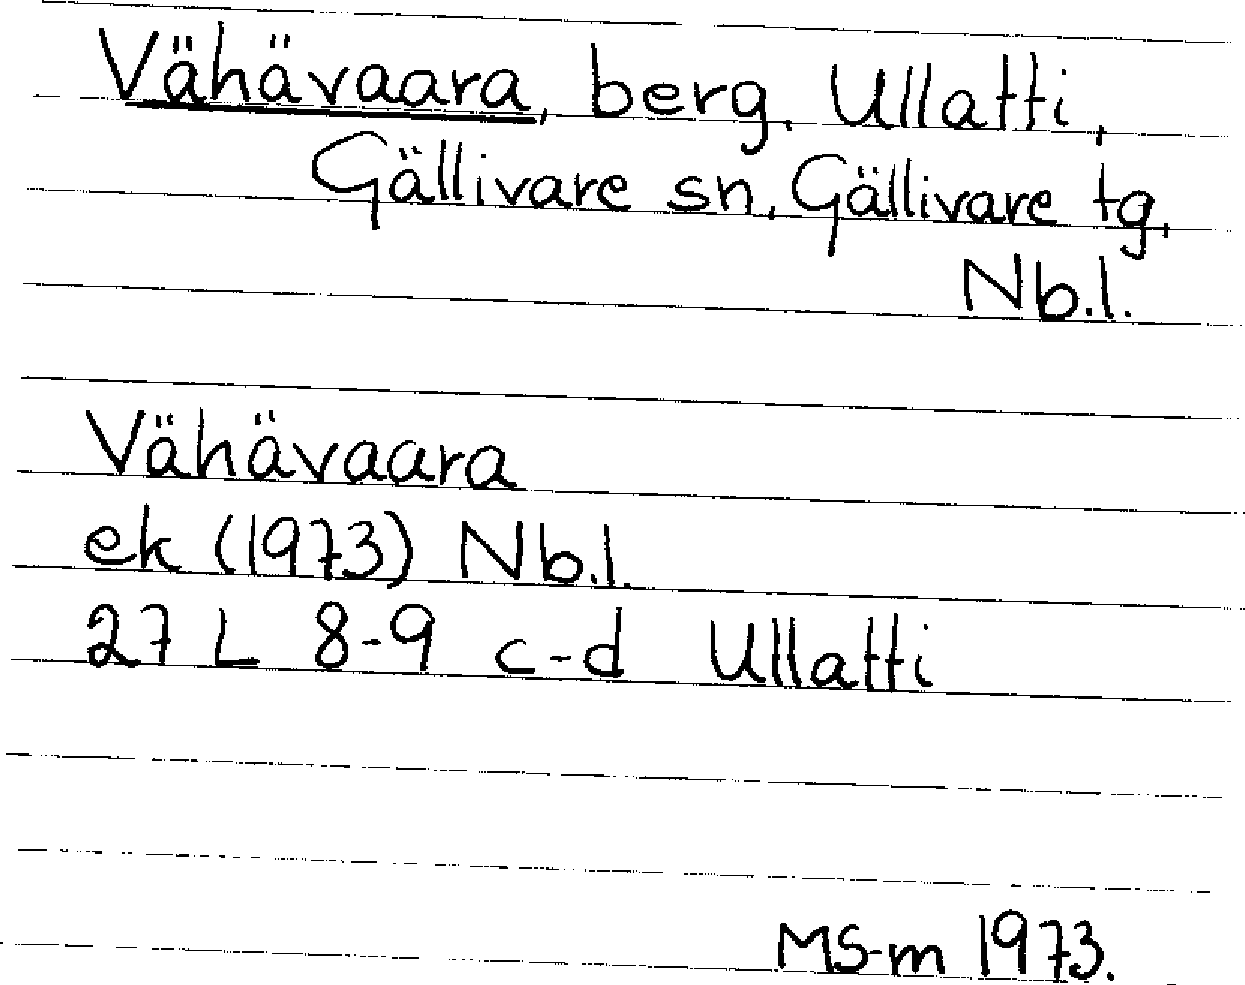 Vähävaara, berg, Ullatti,
Gällivare sn, Gällivare tg,
Nb.l.
Vähävaara
ek (1973) Nb.l.
27 L 8-9 c-d Ullatti
MS-m 1973.